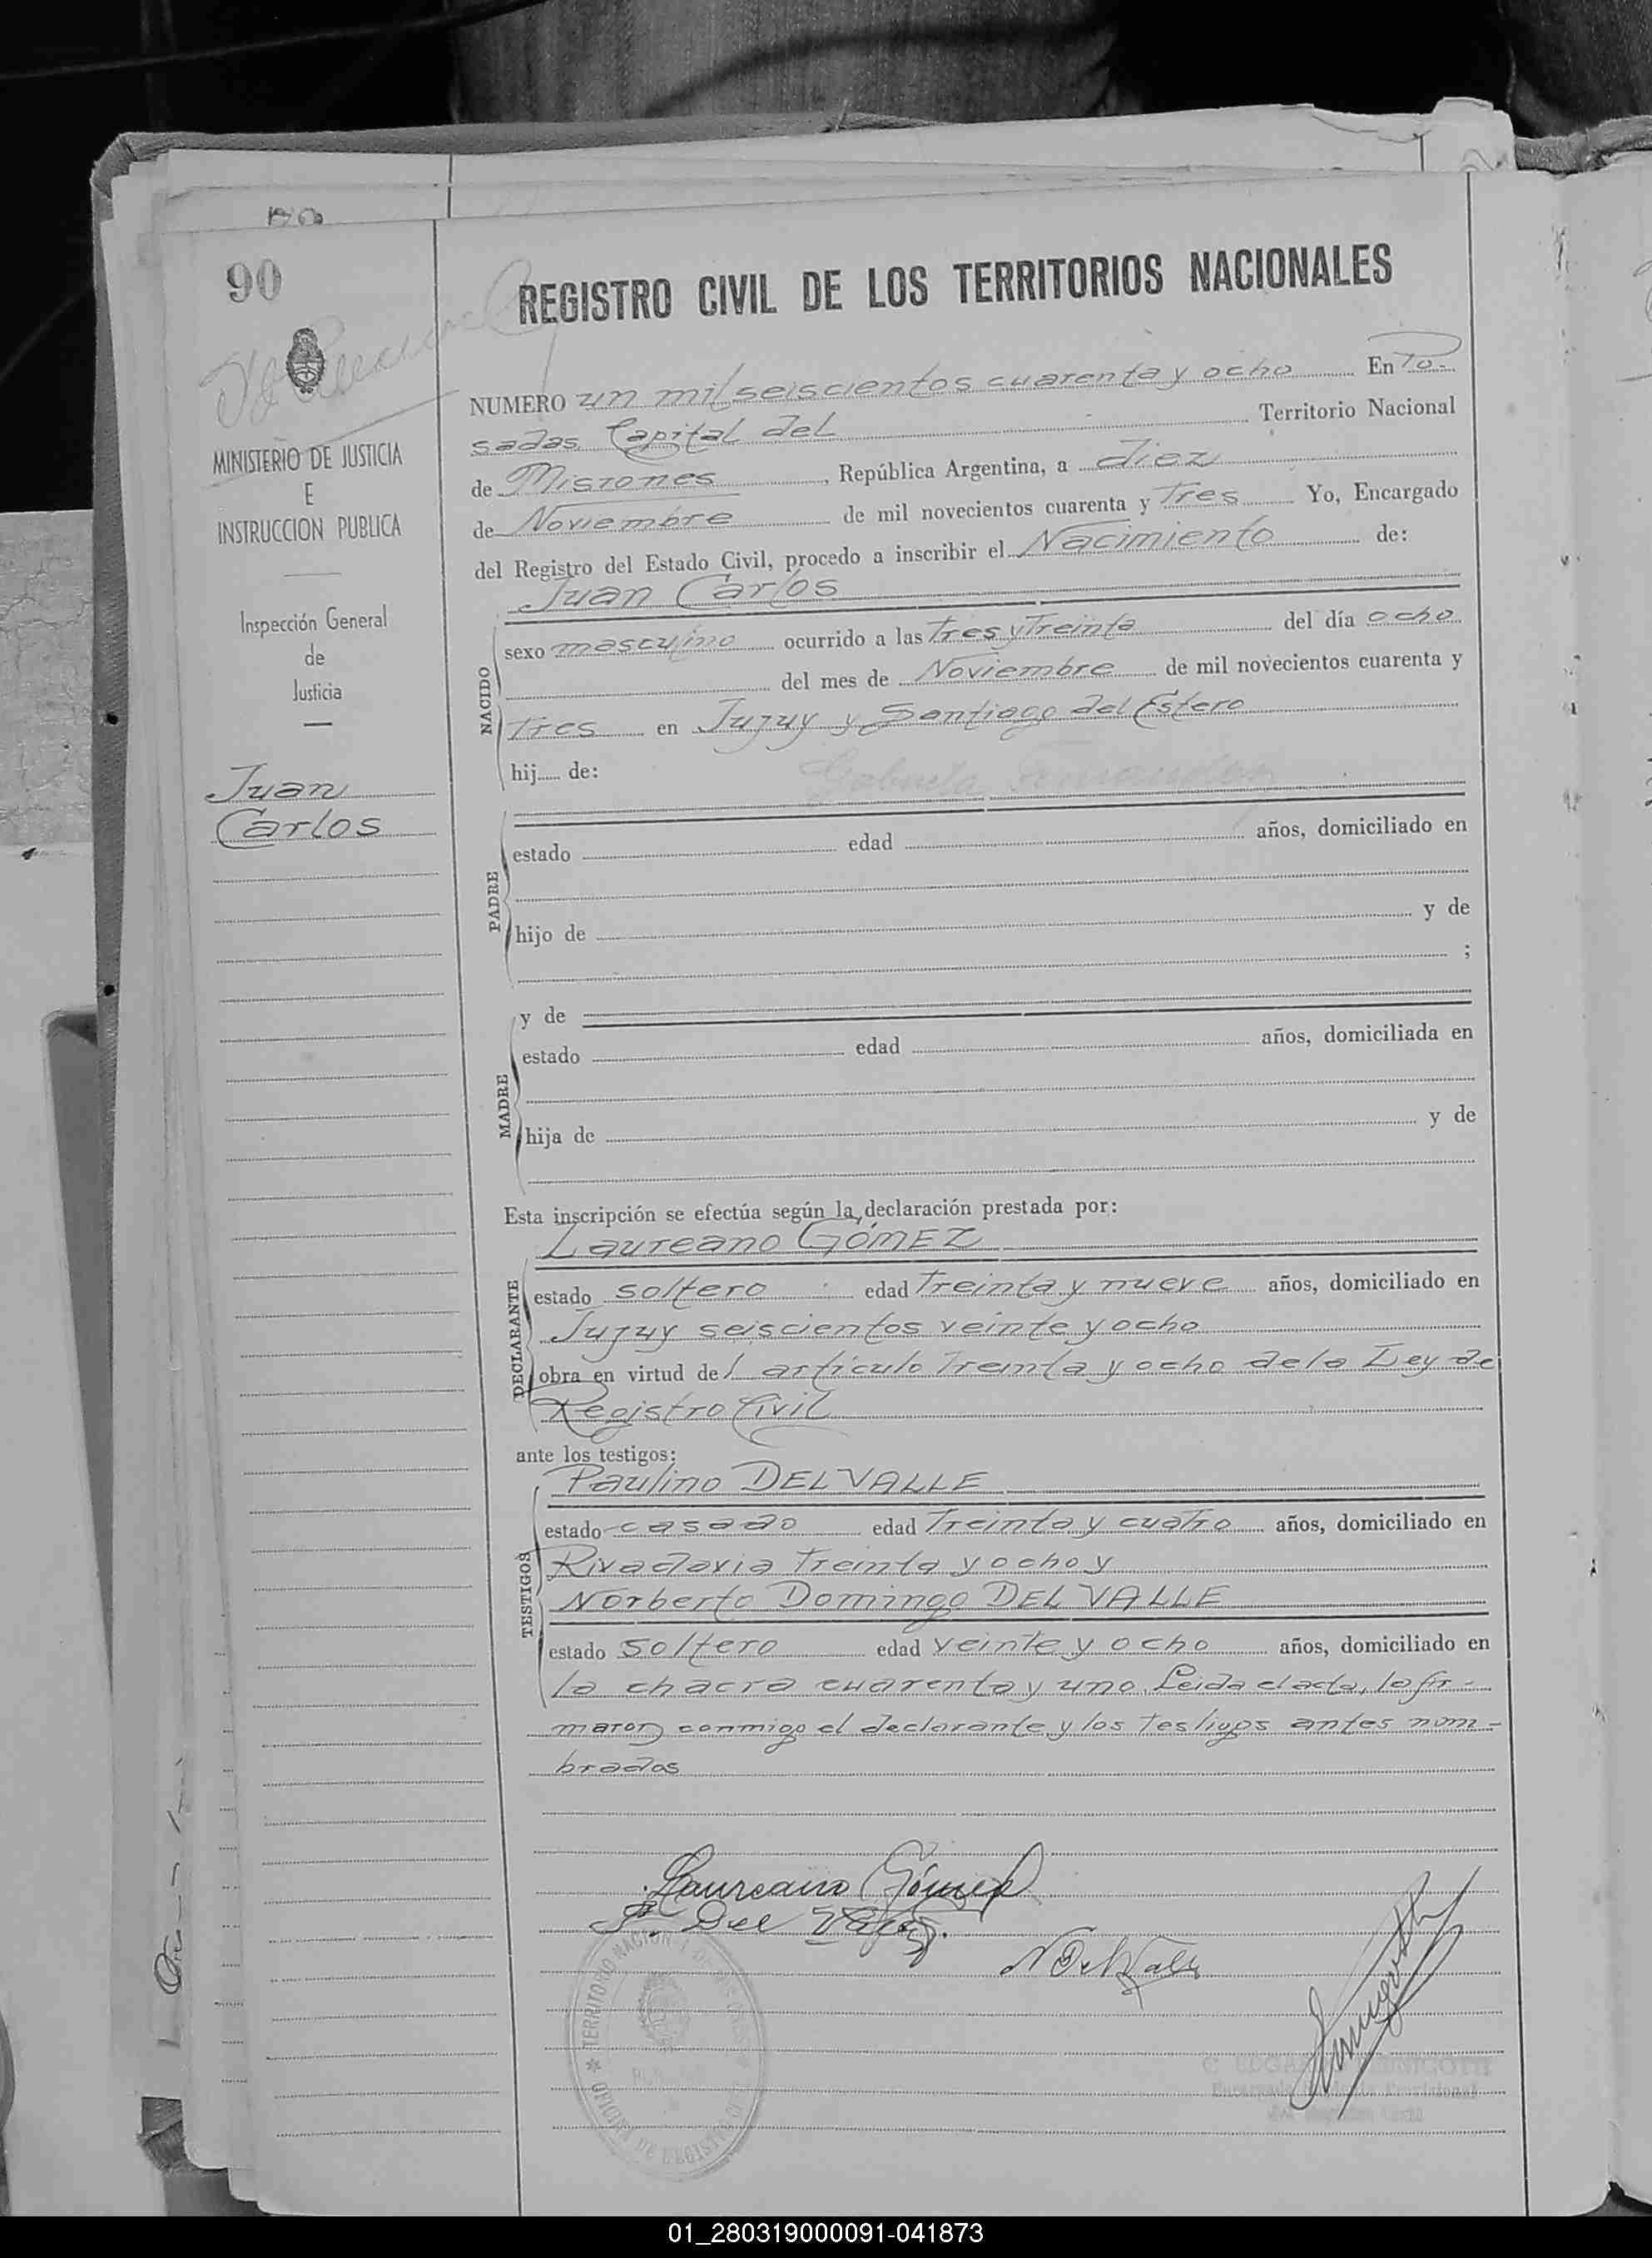 90
REGISTRO CIVIL DE LOS TERRITORIOS NACIONALES
MINISTERIO DE JUSTICIA
E
INSTRUCCION PUBLICA
Inspección General
de
Justicia
Juan
Carlos
NUMERO un mil seiscientos cuarenta y ocho En Po-
sadas Capital del Territorio Nacional
de Misiones, República Argentina, a diez
de Noviembre de mil novecientos cuarenta y Tres Yo, Encargado
del Registro del Estado Civil, procedo a inscribir el Nacimiento de:
Juan Carlos
NACIDO
sexo masculino ocurrido a las Tres y Treinta del día ocho
del mes de Noviembre de mil novecientos cuarenta y
Tres en Jujuy y Santiago del Estero
hij de:
PADRE
estado edad años, domiciliado en
hijo de y de
;
y de
MADRE
estado edad años, domiciliada en
hija de y de
Esta inscripción se efectúa según la declaración prestada por:
Laureano GÓMEZ
DECLARANTE
estado soltero edad Treinta y nueve años, domiciliado en
Jujuy seiscientos veinte y ocho
obra en virtud del artículo Treinta y ocho de la Ley de
Registro Civil
ante los testigos:
Paulino DEL VALLE
TESTIGOS
estado casado edad Treinta y cuatro años, domiciliado en
Rivadavia Treinta y ocho y
Norberto Domingo DEL VALLE
estado soltero edad veinte y ocho años, domiciliado en
la chacra cuarenta y uno. Leida el acta, la fir-
maron conmigo el declarante y los Testigos antes nom-
brados
Laureano Gómez
P. Del Valle
N Del Valle
01_280319000091-041873